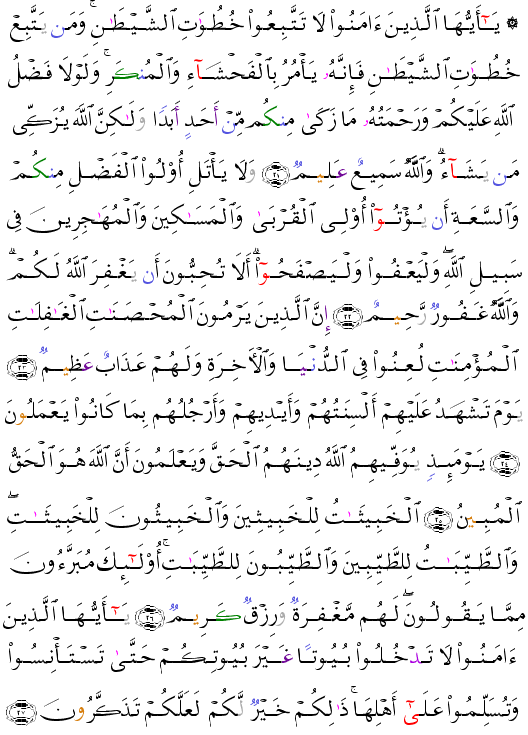 ۞ يَـٰٓأَيُّهَا ٱلَّذِينَ ءَامَنُوا۟ لَا تَتَّبِعُوا۟ خُطُوَٰتِ ٱلشَّيْطَـٰنِ ۚ وَمَن يَتَّبِعْ
خُطُوَٰتِ ٱلشَّيْطَـٰنِ فَإِنَّهُۥ يَأْمُرُ بِٱلْفَحْشَآءِ وَٱلْمُنكَرِ ۚ وَلَوْلَا فَضْلُ
ٱللَّهِ عَلَيْكُمْ وَرَحْمَتُهُۥ مَا زَكَىٰ مِنكُم مِّنْ أَحَدٍ أَبَدًا وَلَـٰكِنَّ ٱللَّهَ يُزَكِّى
مَن يَشَآءُ ۗ وَٱللَّهُ سَمِيعٌ عَلِيمٌ ﴿٢١﴾ وَلَا يَأْتَلِ أُو۟لُوا۟ ٱلْفَضْلِ مِنكُمْ
وَٱلسَّعَةِ أَن يُؤْتُوٓا۟ أُو۟لِى ٱلْقُرْبَىٰ وَٱلْمَسَـٰكِينَ وَٱلْمُهَـٰجِرِينَ فِى
سَبِيلِ ٱللَّهِ ۖ وَلْيَعْفُوا۟ وَلْيَصْفَحُوٓا۟ ۗ أَلَا تُحِبُّونَ أَن يَغْفِرَ ٱللَّهُ لَكُمْ ۗ
وَٱللَّهُ غَفُورٌ رَّحِيمٌ ﴿٢٢﴾ إِنَّ ٱلَّذِينَ يَرْمُونَ ٱلْمُحْصَنَـٰتِ ٱلْغَـٰفِلَـٰتِ
ٱلْمُؤْمِنَـٰتِ لُعِنُوا۟ فِى ٱلدُّنْيَا وَٱلْـَٔاخِرَةِ وَلَهُمْ عَذَابٌ عَظِيمٌ ﴿٢٣﴾
يَوْمَ تَشْهَدُ عَلَيْهِمْ أَلْسِنَتُهُمْ وَأَيْدِيهِمْ وَأَرْجُلُهُم بِمَا كَانُوا۟ يَعْمَلُونَ
﴿٢٤﴾ يَوْمَئِذٍ يُوَفِّيهِمُ ٱللَّهُ دِينَهُمُ ٱلْحَقَّ وَيَعْلَمُونَ أَنَّ ٱللَّهَ هُوَ ٱلْحَقُّ
ٱلْمُبِينُ ﴿٢٥﴾ ٱلْخَبِيثَـٰتُ لِلْخَبِيثِينَ وَٱلْخَبِيثُونَ لِلْخَبِيثَـٰتِ ۖ
وَٱلطَّيِّبَـٰتُ لِلطَّيِّبِينَ وَٱلطَّيِّبُونَ لِلطَّيِّبَـٰتِ ۚ أُو۟لَـٰٓئِكَ مُبَرَّءُونَ
مِمَّا يَقُولُونَ ۖ لَهُم مَّغْفِرَةٌ وَرِزْقٌ كَرِيمٌ ﴿٢٦﴾ يَـٰٓأَيُّهَا ٱلَّذِينَ
ءَامَنُوا۟ لَا تَدْخُلُوا۟ بُيُوتًا غَيْرَ بُيُوتِكُمْ حَتَّىٰ تَسْتَأْنِسُوا۟
وَتُسَلِّمُوا۟ عَلَىٰٓ أَهْلِهَا ۚ ذَٰلِكُمْ خَيْرٌ لَّكُمْ لَعَلَّكُمْ تَذَكَّرُونَ ﴿٢٧﴾